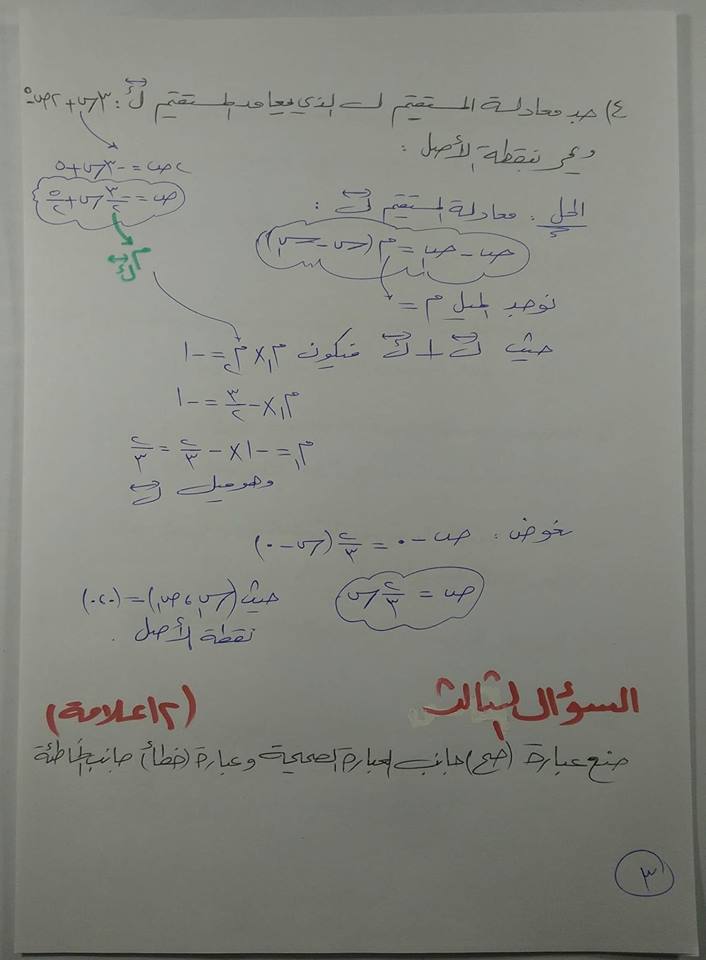 ٤) جد معادلة المستقيم ل الذي يعامد المستقيم ل : ٣س + ٢ص = ٥
ويمر بنقطة الأصل :
٢ص = -٣س + ٥
ص = -٣/٢ س + ٥/٢
م
الحل : معادلة المستقيم ل :
ص - ص١ = م(س - س١)
نوجد الميل م =
حيث ل ⊥ ل فتكون م١ × م٢ = -١
م١ × -٣/٢ = -١
م١ = -١ × -٢/٣ = ٢/٣
وهو ميل ل
نعوض : ص - ٠ = ٢/٣ (س - ٠)
ص = ٢/٣ س
حيث (س١، ص١) = (٠،٠)
نقطة الأصل .
السؤال الثالث (١٢ علامة)
ضع عبارة (صح) جانب العبارة الصحيحة وعبارة (خطأ) جانب الخاطئة
٣